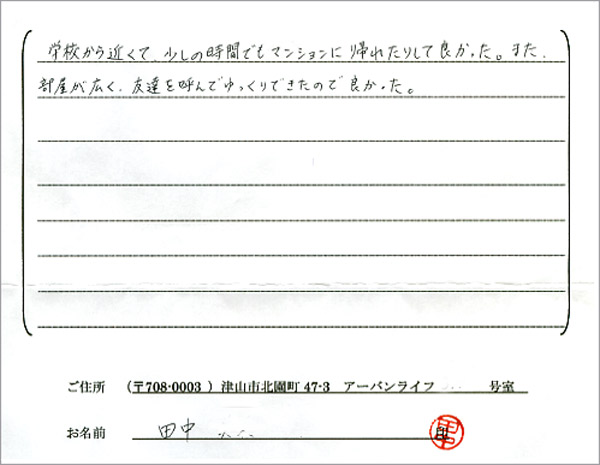 学校から近くて、少しの時間でもマンションに帰れたりして良かった。また、
部屋が広く、友達を呼んでゆっくりできたので良かった。
ご住所 (〒708-0003 ) 津山市北園町 47-3 アーバンライフ 号室
お名前 田中 印
田中